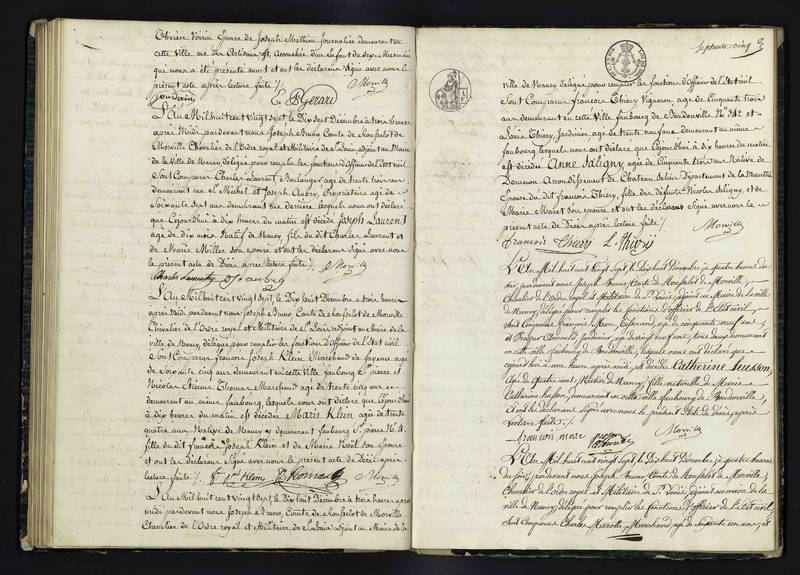 Thérèse Voirin Epouse de Joseph Mathieu Journalier demeurant en
cette Ville est accouchée d'un Enfant du sexe Masculin
qui nous a été présenté mort et ont les déclarans signé avec nous le
présent acte après lecture faite /.
E B Gerard Morville
L'An Mil huit cent vingt sept le Dix Sept Décembre à trois heures
après Midi pardevant nous Joseph Bruno Comte de Mousselot de
Morville Chevalier de l'Ordre royal et Militaire de St Louis adjoint au Maire
de la Ville de Nancy délégué pour remplir les fonctions d'Officier de l'Etat civil
Sont Comparus Charles Laurent, Boulanger agé de trente trois ans
demeurant rue St Michel et Joseph Aubry, Propriétaire agé de
Soixante sept ans demeurant rue derrière lesquels nous ont déclaré
que Cejourd'hui à dix heures du matin est décédé Joseph Laurent
agé de dix mois Natif de Nancy, fils du dit Charles Laurent et
de Marie Miller son épouse et ont les déclarans signé avec nous
le présent acte de Décès après lecture faite /.
Charles Laurent J Aubry Morville
L'An Mil huit cent Vingt Sept, le Dix huit Décembre à trois heures
après midi pardevant nous Joseph Bruno, Comte de Mousselot de Morville
Chevalier de l'Ordre royal et Militaire de St Louis adjoint au Maire de la
ville de Nancy, délégué pour remplir les fonctions d'Officier de l'Etat civil
Sont Comparus François Joseph Klein Marchand de fayence agé
de Soixante cinq ans demeurant en cette Ville faubourg St pierre et
Nicolas Etienne Thomas Marchand agé de trente cinq ans
demeurant au même faubourg, lesquels nous ont déclaré que Cejourd'hui
à dix heures du matin est décédée Marie Klein agée de trente
quatre ans Native de Nancy y demeurant faubourg St pierre No
fille du dit françois Joseph Klein et de Marie Noël son épouse
et ont les déclarans Signé avec nous le présent acte de Décès après
lecture faite /. Klein Morville
L'An Mil huit cent vingt sept, le Dix huit Décembre à trois heures après
midi pardevant nous Joseph Bruno, Comte de Mousselot de Morville
Chevalier de l'Ordre royal et Militaire de St Louis adjoint au Maire de la
Septante cinq
ville de Nancy délégué pour remplir les fonctions d'Officier de l'Etat civil
Sont Comparus François Thiery Vigneron, agé de Cinquante trois
ans demeurant en cette Ville faubourg de Boudonville No 342 et
Louis Thiery, Jardinier agé de trente neuf ans demeurant au même
faubourg lesquels nous ont déclaré que Cejourd'hui à dix heures du matin
est décédée Anne Saligny agée de Cinquante trois ans Native de
Donnom Arrondissement de Chateau Salins Département de la Meurthe
Epouse du dit françois Thiery, fille des défunts Nicolas Saligny, et de
Marie Maret son épouse et ont les déclarans signé avec nous le
présent acte de Décès après lecture faite /. Morville
François Thiery L. Thiery
L'An Mil huit cent vingt sept, le Dix huit Décembre à quatre heures du
soir, pardevant nous Joseph Bruno Comte de Mousselot de Morville,
Chevalier de l'Ordre royal et Militaire de St Louis, adjoint au Maire de la ville
de Nancy, délégué pour remplir les fonctions d'Officier de l'Etat civil,
Sont Comparus François Marc, agé de cinquante neuf ans
et Prosper Jardinier, agé de vingt neuf ans, tous deux demeurant
en cette ville faubourg de Boudonville, lesquels nous ont déclaré que
cejourd'hui à une heure après midi, est décédée Catherine husson,
Agée de Quatre ans, Native de Nancy, fille naturelle de Marie
Catherine husson, demeurant en cette ville faubourg de Boudonville,
et ont les déclarans signé avec nous le présent Acte de Décès, après
lecture faite /.
françois marc prosper Morville
L'An Mil huit cent vingt sept, le Dix huit Décembre à quatre heures
du soir, pardevant nous Joseph Bruno Comte de Mousselot de Morville,
Chevalier de l'Ordre royal et Militaire de St Louis, adjoint au Maire de la
ville de Nancy, délégué pour remplir les fonctions d'Officier de l'Etat civil,
Sont Comparus Charles Marotte, Marchand, agé de soixante un ans, et